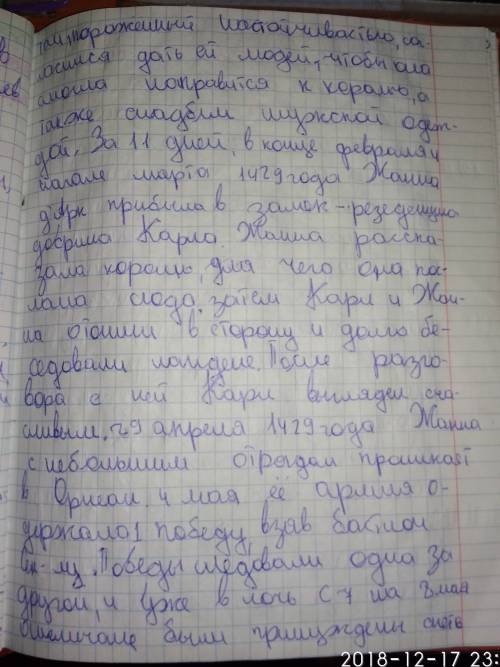 тан, пораженный настойчивостью, со-
гласился дать ей людей, чтобы она
смогла направится к королю, а
также снабдил мужской одеж-
дой. За 11 дней, в конце февраля и
начале марта 1429 года Жанна
дʼарк прибыла в замок - резеденцию
дофина Карла. Жанна расска-
зала королю, для чего она по-
слана сюда, затем Карл и Жан-
на отошли в сторону и долго бе-
седовали наедине. После разго-
вора с ней Карл выглядел сча-
сливым. 29 апреля 1429 года Жанна
с небольшим отрядом проникает
в Орлеан. 4 мая её армия о-
держала 1 победу, взяв бастион
Победы следовали одна за
другой, и уже в ночь с 7 на 8 мая
англичане были принуждены снять
2018-12-17 23: